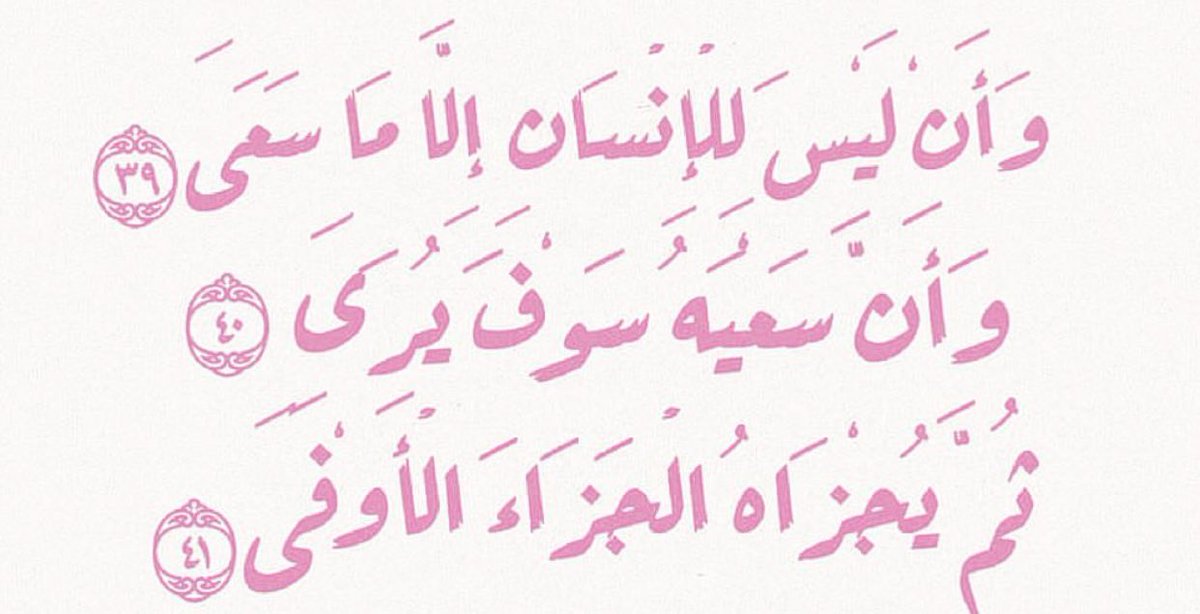 وَأَنْ لَيْسَ لِلْإِنْسَانِ إِلَّا مَا سَعَى ٣٩
وَأَنَّ سَعْيَهُ سَوْفَ يُرَى ٤٠
ثُمَّ يُجْزَاهُ الْجَزَاءَ الْأَوْفَى ٤١